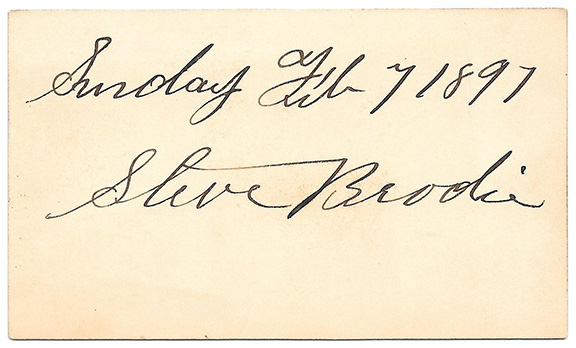 Sunday Feb 7 1897
Steve Brodie